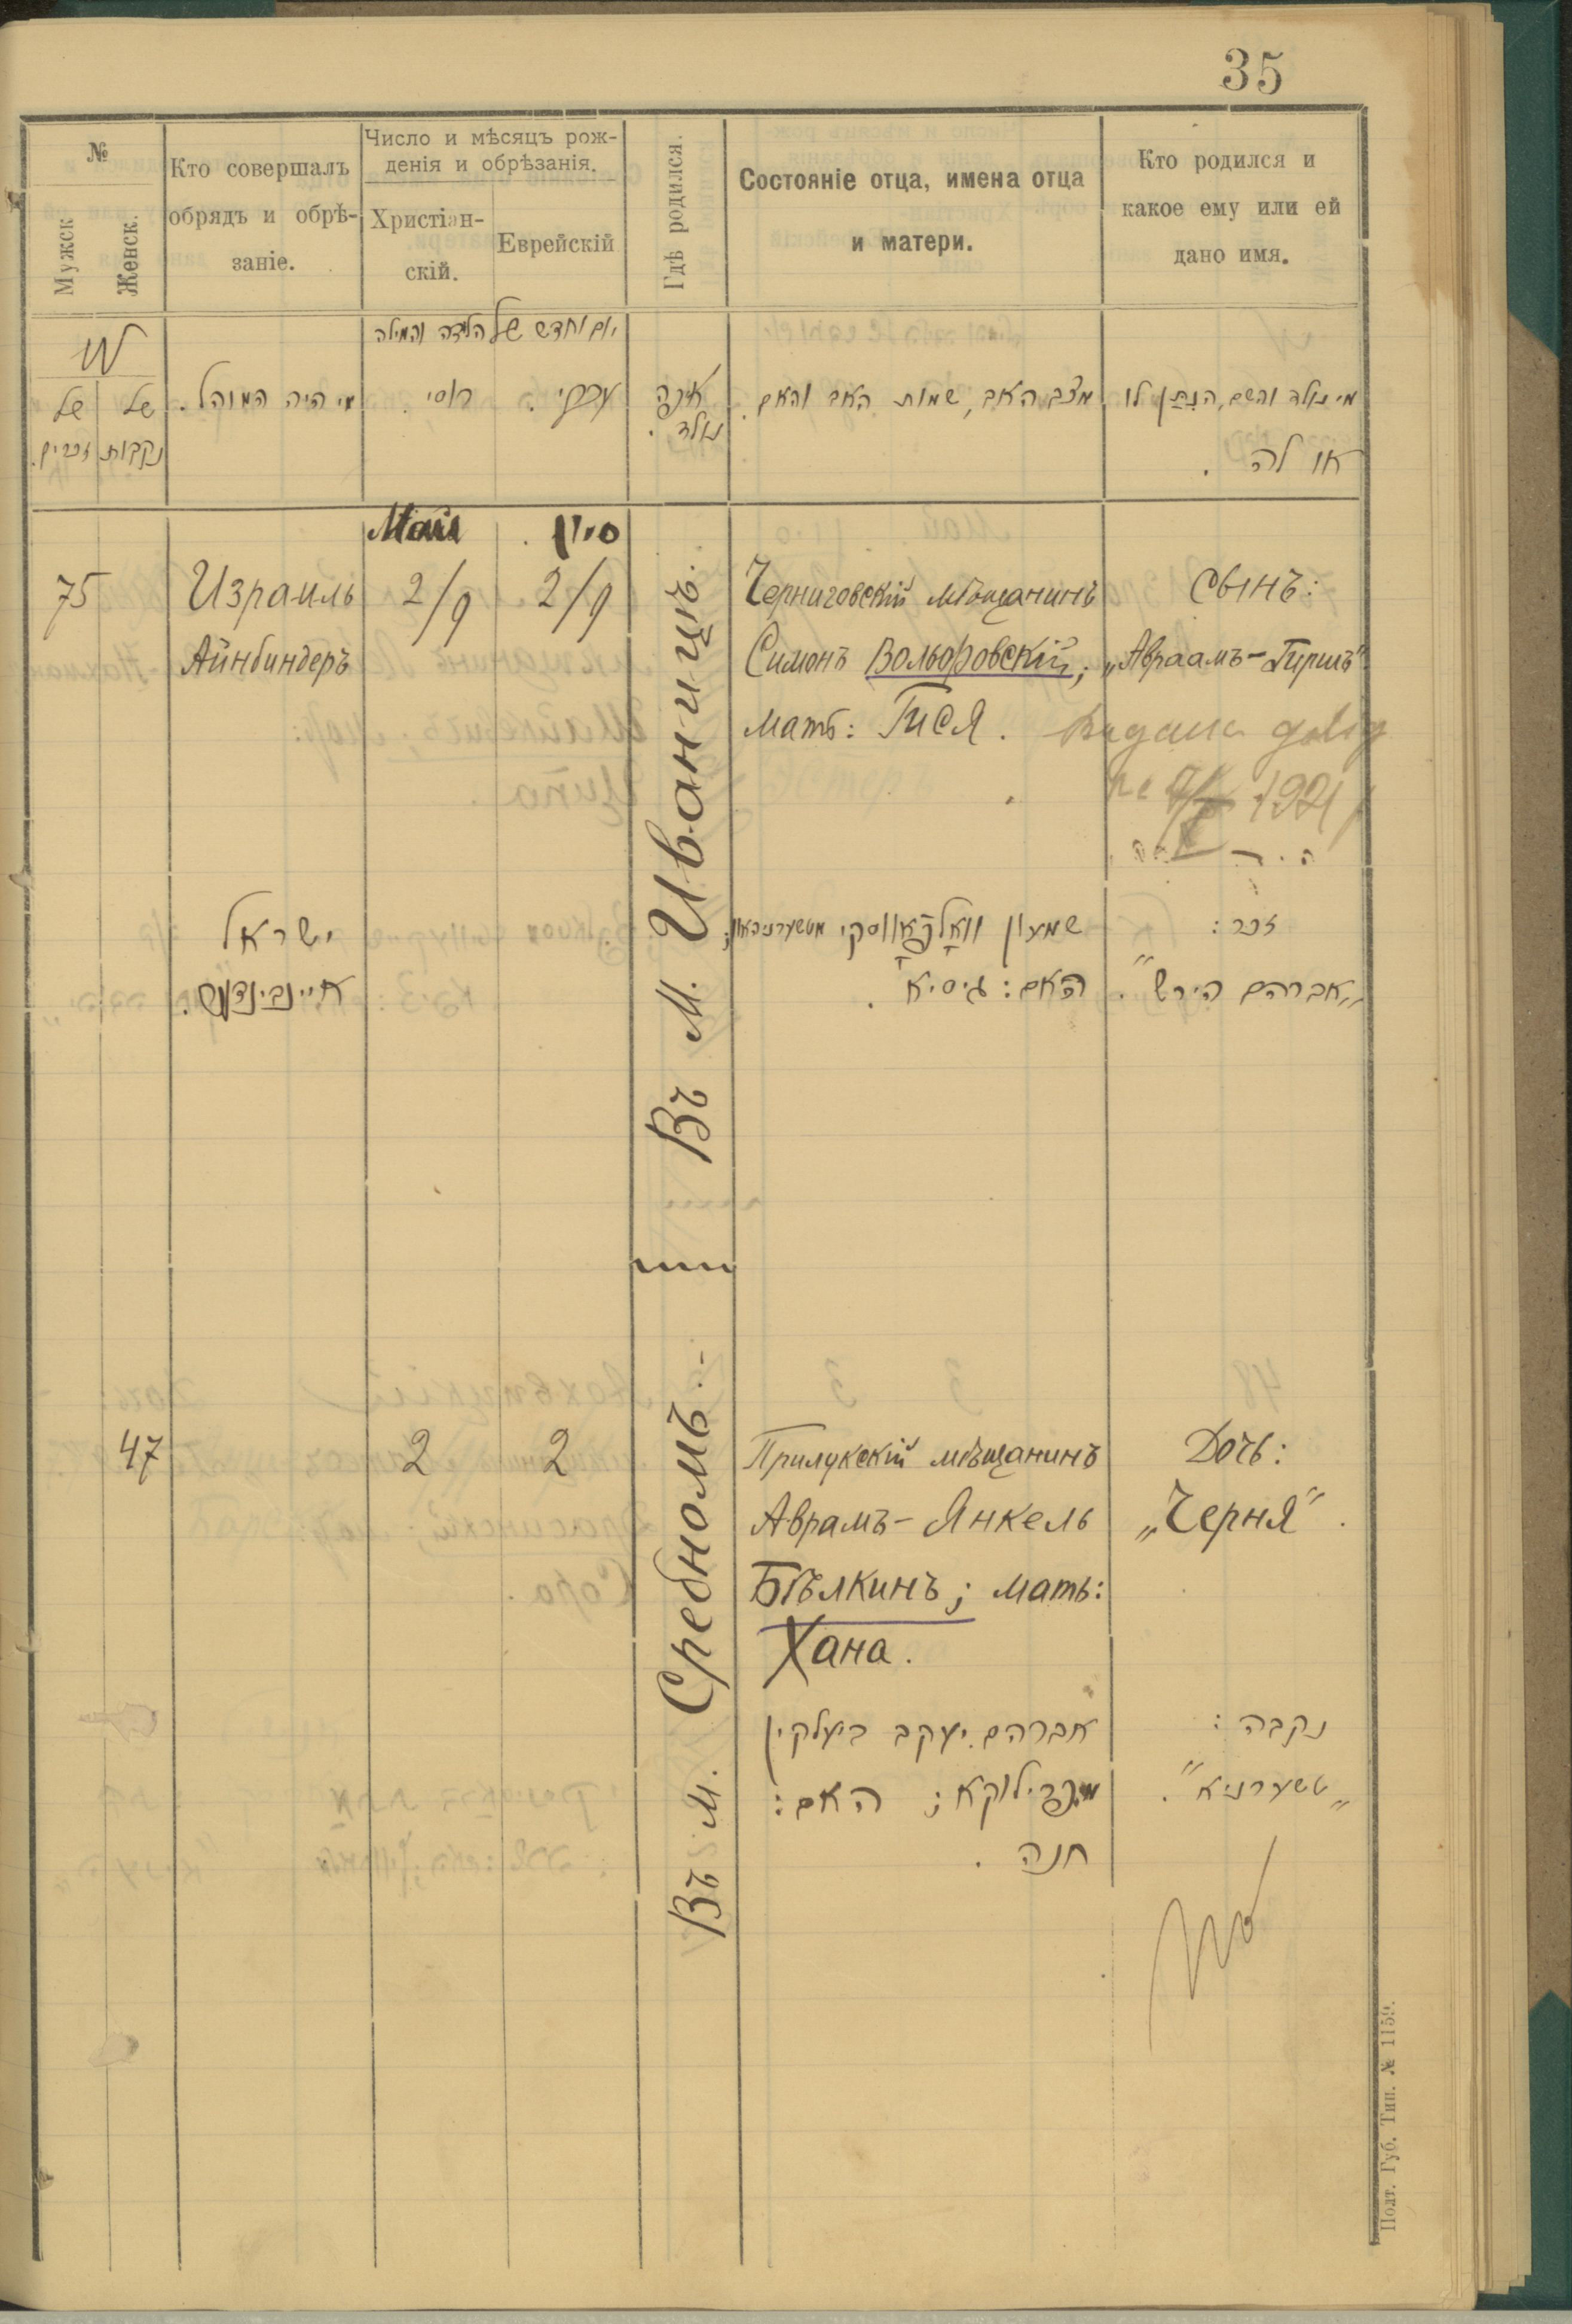 35
№
Мужск
Женск.
Кто совершалъ
обрядъ и обрѣ-
заніе.
Число и мѣсяцъ рож-
денія и обрѣзанія.
Христіан-
скій.
Еврейскій
Гдѣ родился.
Состояніе отца, имена отца
и матери.
Кто родился и
какое ему или ей
дано имя.
יום וחדש של הלידה והמילה
של
נקבות
של
זכרים.
מי היה המוהל.
רוסי.
עברי.
איפה
נולד.
מצב האב, שמות האב והאם.
מי נולד והשם, הנתן לו
או לה.
Май
סיון.
75
Израиль
Айнбиндеръ
2/9
2/9
Въ м. Иваницѣ.
Черниговскій мѣщанинъ
Симонъ Вольфовскій;
мать: Гися.
сынъ:
„Авраамъ-Гиршъ“
1921
ישראל
איינבינדער.
שמעון וואָלפֿאָווסקי
האם: גיסיא.
זכר:
„אברהם הירש“.
47
2
2
Въ м. Сребномъ.
Прилукскій мѣщанинъ
Аврамъ-Янкель
Бѣлкинъ; мать:
Хана.
Дочь:
„Черня“.
אברהם יעקב ביעלקין
מפרילוקא; האם:
חנה.
נקבה:
„טשערניא“.
Полт. Губ. Тип. № 1159.